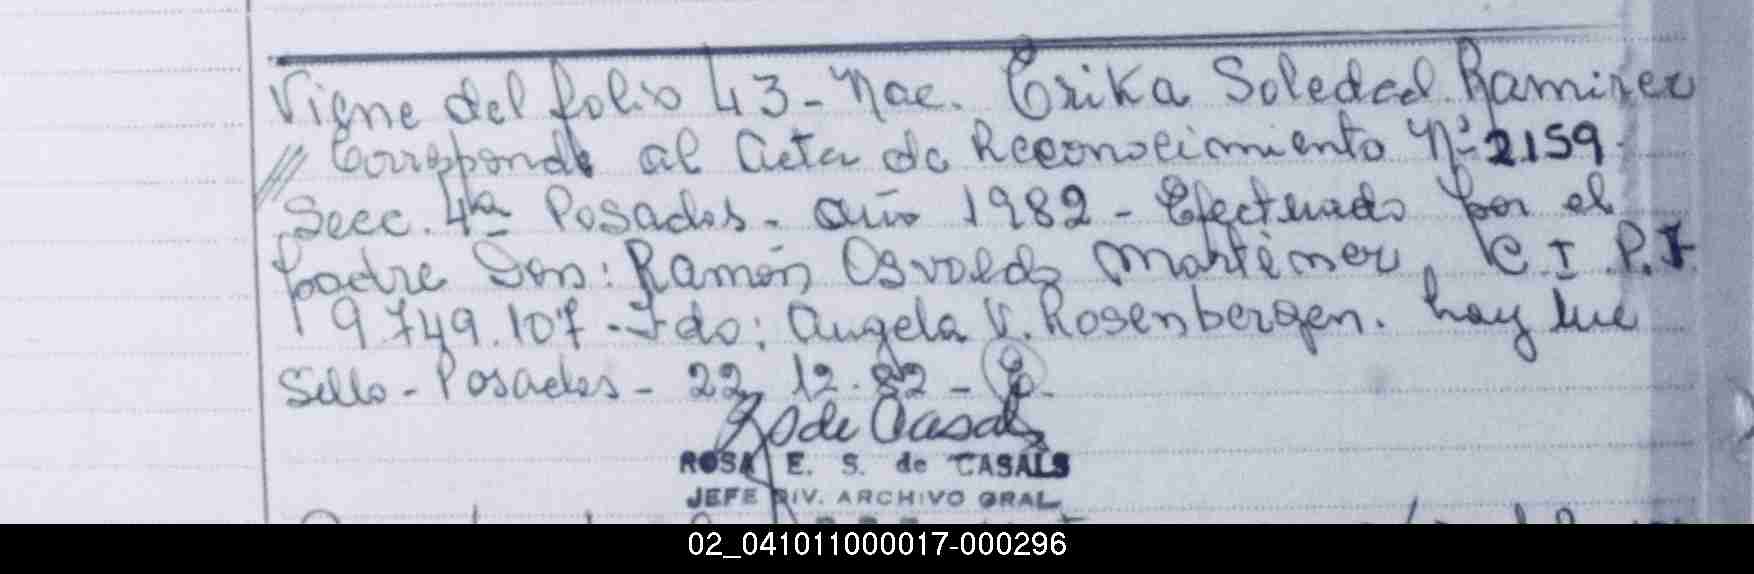 Viene del folio 43 - Nac. Erika Soledad Ramirez
// Corresponde al Acta de Reconocimiento Nº 2159.
Secc. 4ª Posadas - año 1982 - Efectuado por el
padre Don: Ramón Osvaldo Martinez, C. I. P. F.
9.749.107 - Fdo: Angela V. Rosenbergen. hay un
Sello - Posadas - 22, 12. 82 -
R S de Casals
ROSA E. S. de CASALS
JEFE DIV. ARCHIVO GRAL
02_041011000017-000296